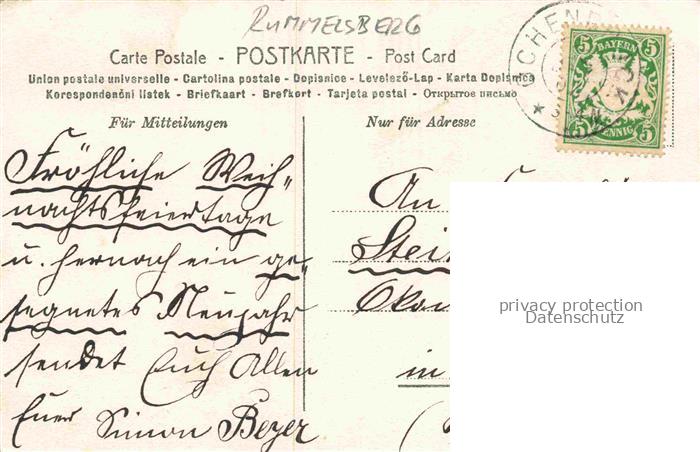 RUMMELSBERG
Carte Postale - POSTKARTE - Post Card
Union postale universelle - Cartolina postale - Dopisnice - Levelező-Lap - Karta Dopisnica
Korespondenční listek - Briefkaart - Brefkort - Tarjeta postal - Открытое письмо
Für Mitteilungen
Nur für Adresse
5 BAYERN 5
5 PFENNIG 5
Fröhliche Weih=
nachtsfeiertage
u. hernach ein ge=
segnetes Neujahr
sendet Euch Allen
Euer Simon Beyer
An
in
privacy protection
Datenschutz